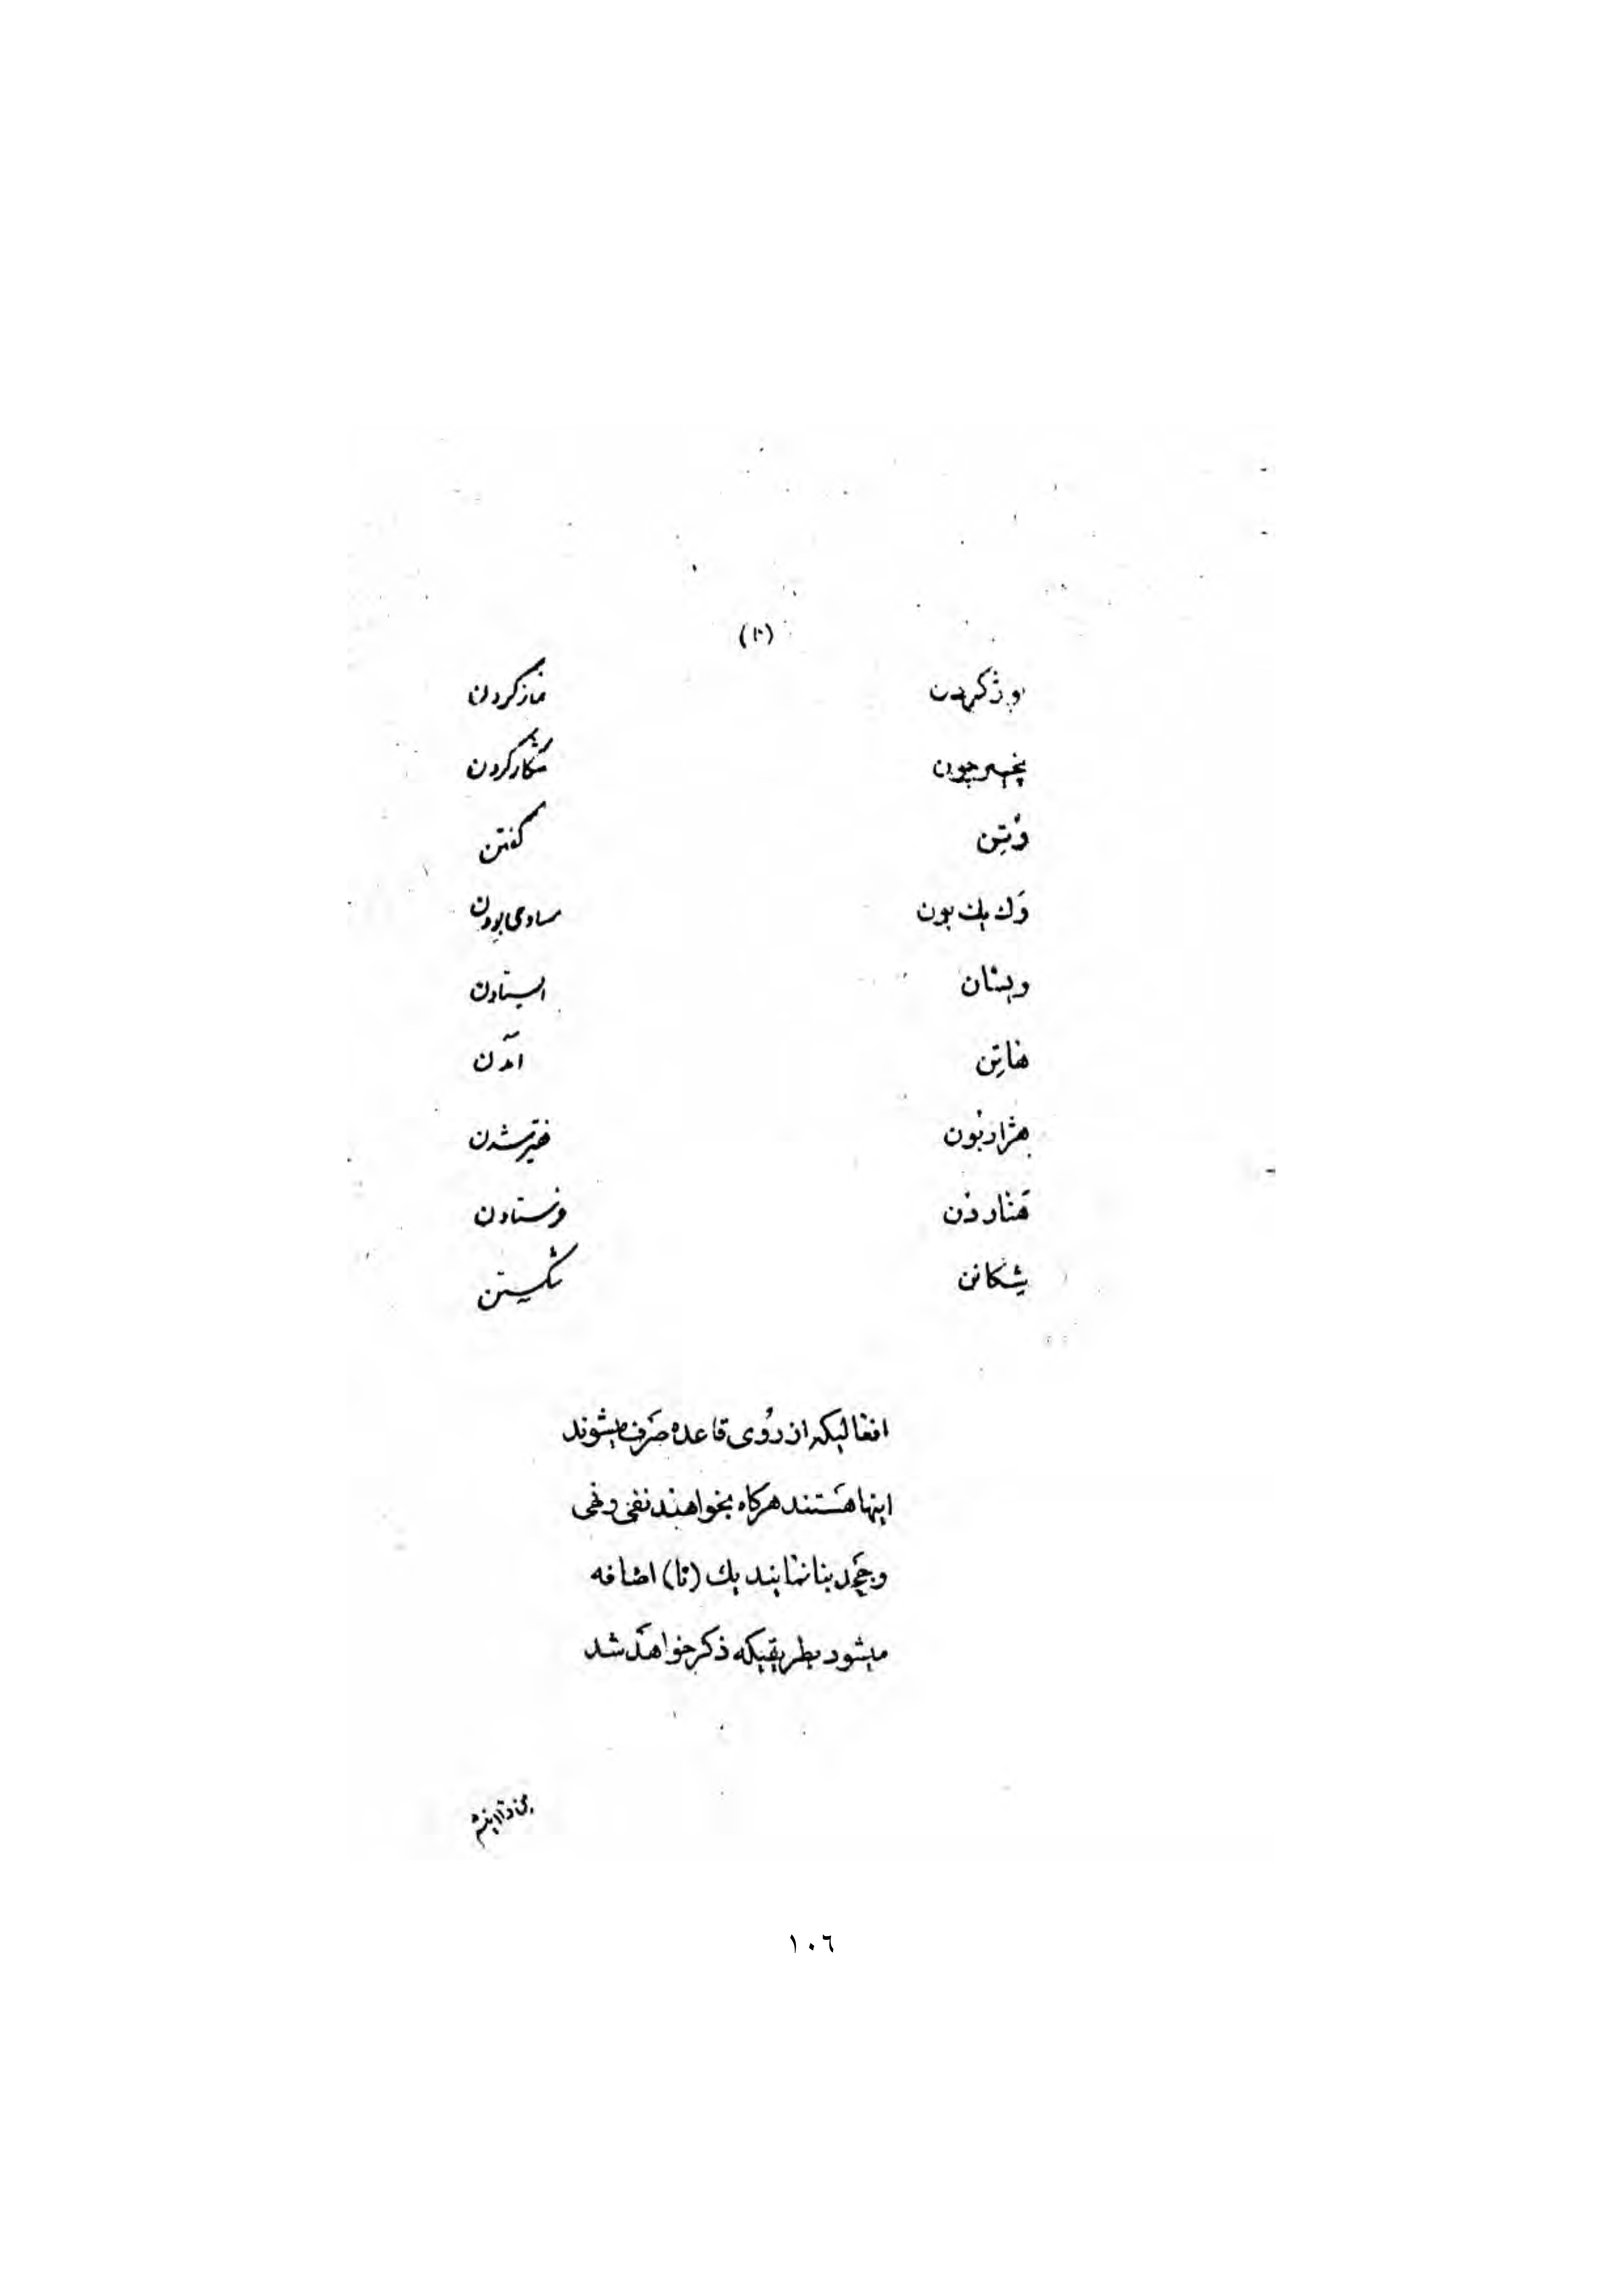 (۱۰)
وژکردن نمازکردن
نچیرچون شکارکردن
وُتِن گفتن
وَك یك بون مساوی بودن
ویستان ایستادن
هاتِن آمدن
هژاربُون فقیرشدن
هَناردُن فرستادن
شکانن شکستن
افعالیکه از رُوی قاعده صَرف میشوند
اینها هَستند هرکاه بخواهند نفی و نهی
و جَحد بنا نمایند یك (نا) اضافه
میشود بطریقیکه ذکر خواهَد شد
١٠٦